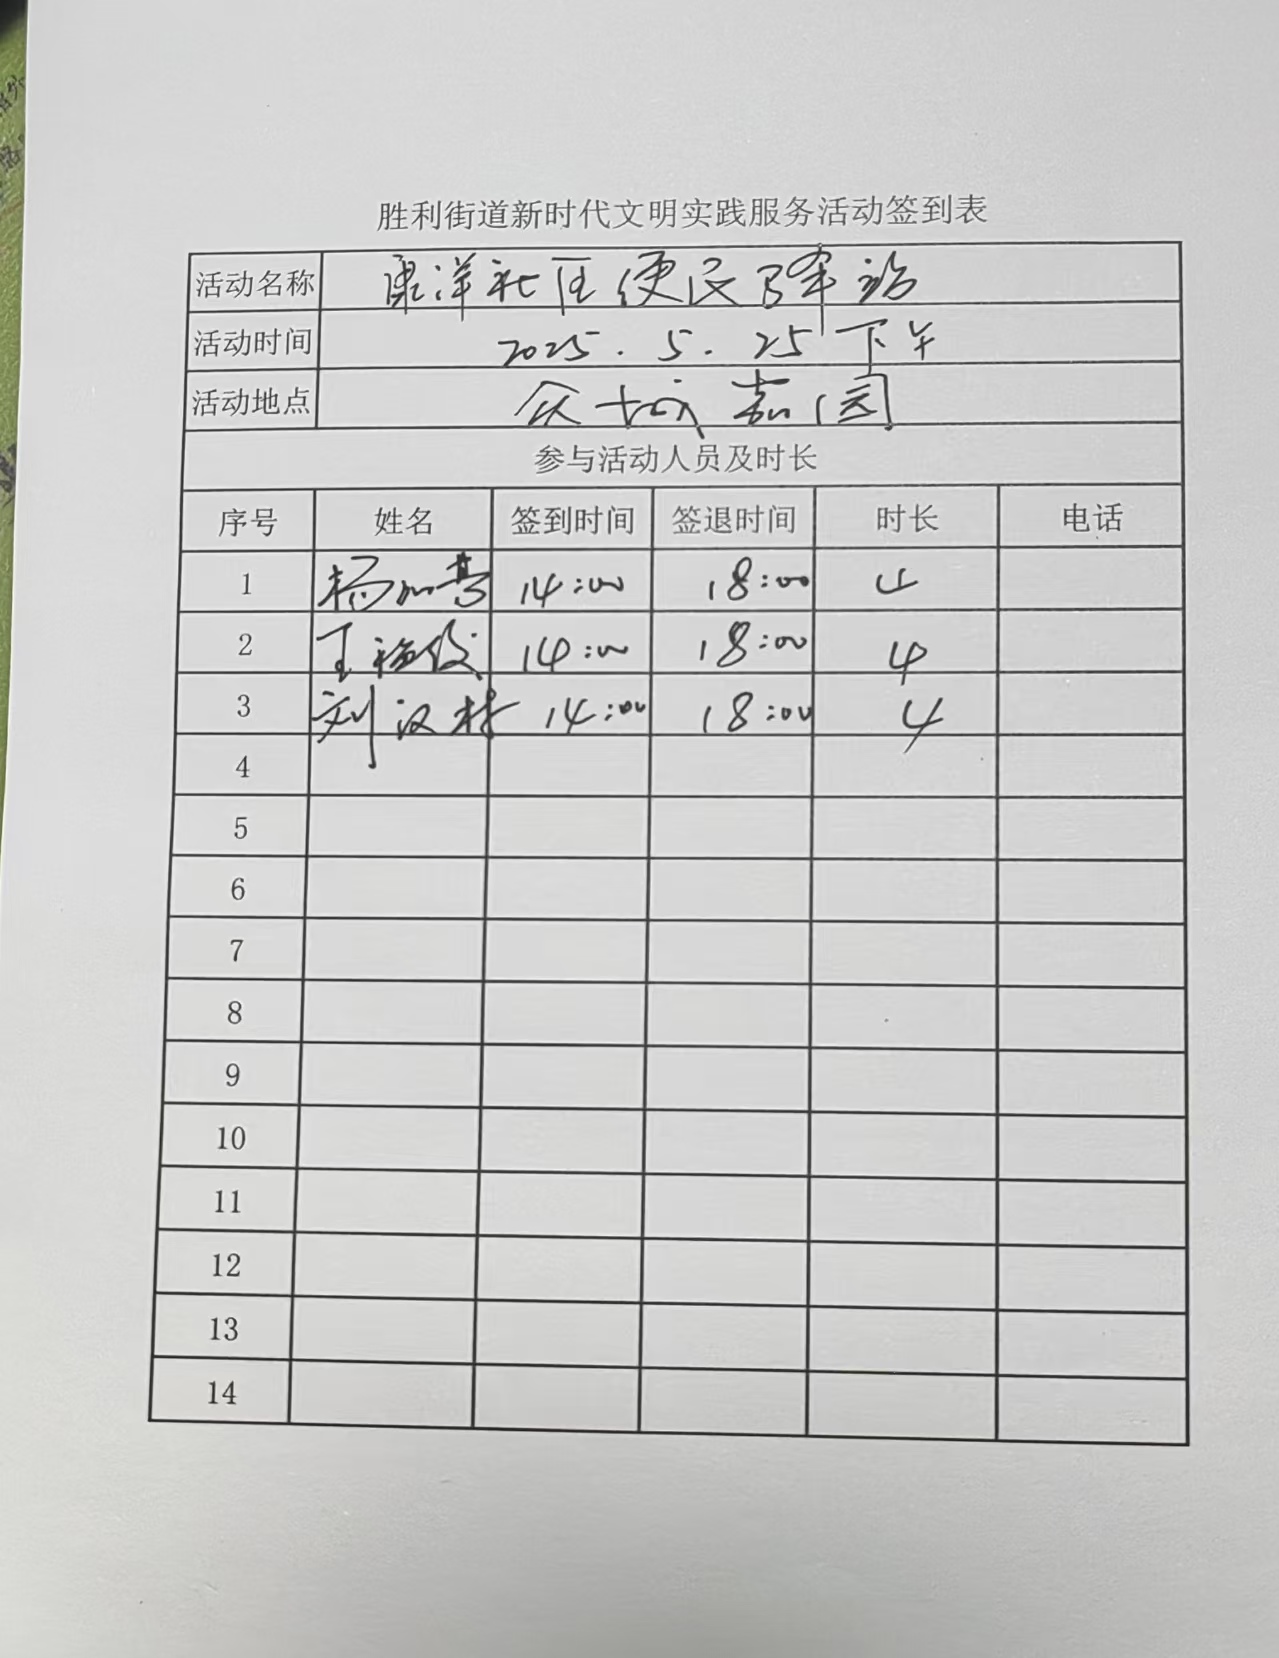 胜利街道新时代文明实践服务活动签到表
活动名称 康洋社区便民
活动时间 2025.5.25下午
活动地点 众城嘉园
参与活动人员及时长
序号 姓名 签到时间 签退时间 时长 电话
1 杨 14:00 18:00 4
2 王 14:00 18:00 4
3 刘汉林 14:00 18:00 4
4
5
6
7
8
9
10
11
12
13
14